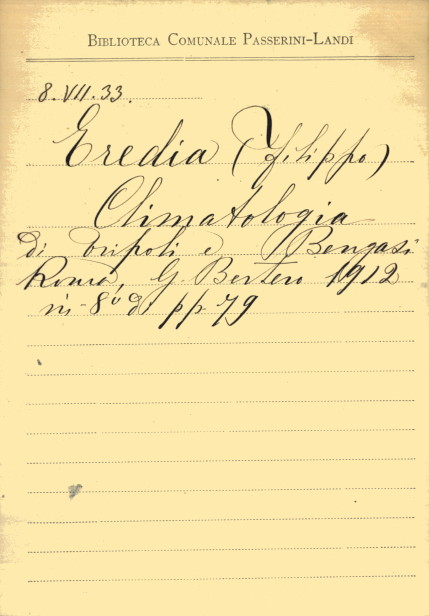 BIBLIOTECA COMUNALE PASSERINI-LANDI
8.VII.33.
Eredia (Filippo)
Climatologia
di Tripoli e Bengasi
Roma, G. Bertero 1912
in-8º di pp. 79